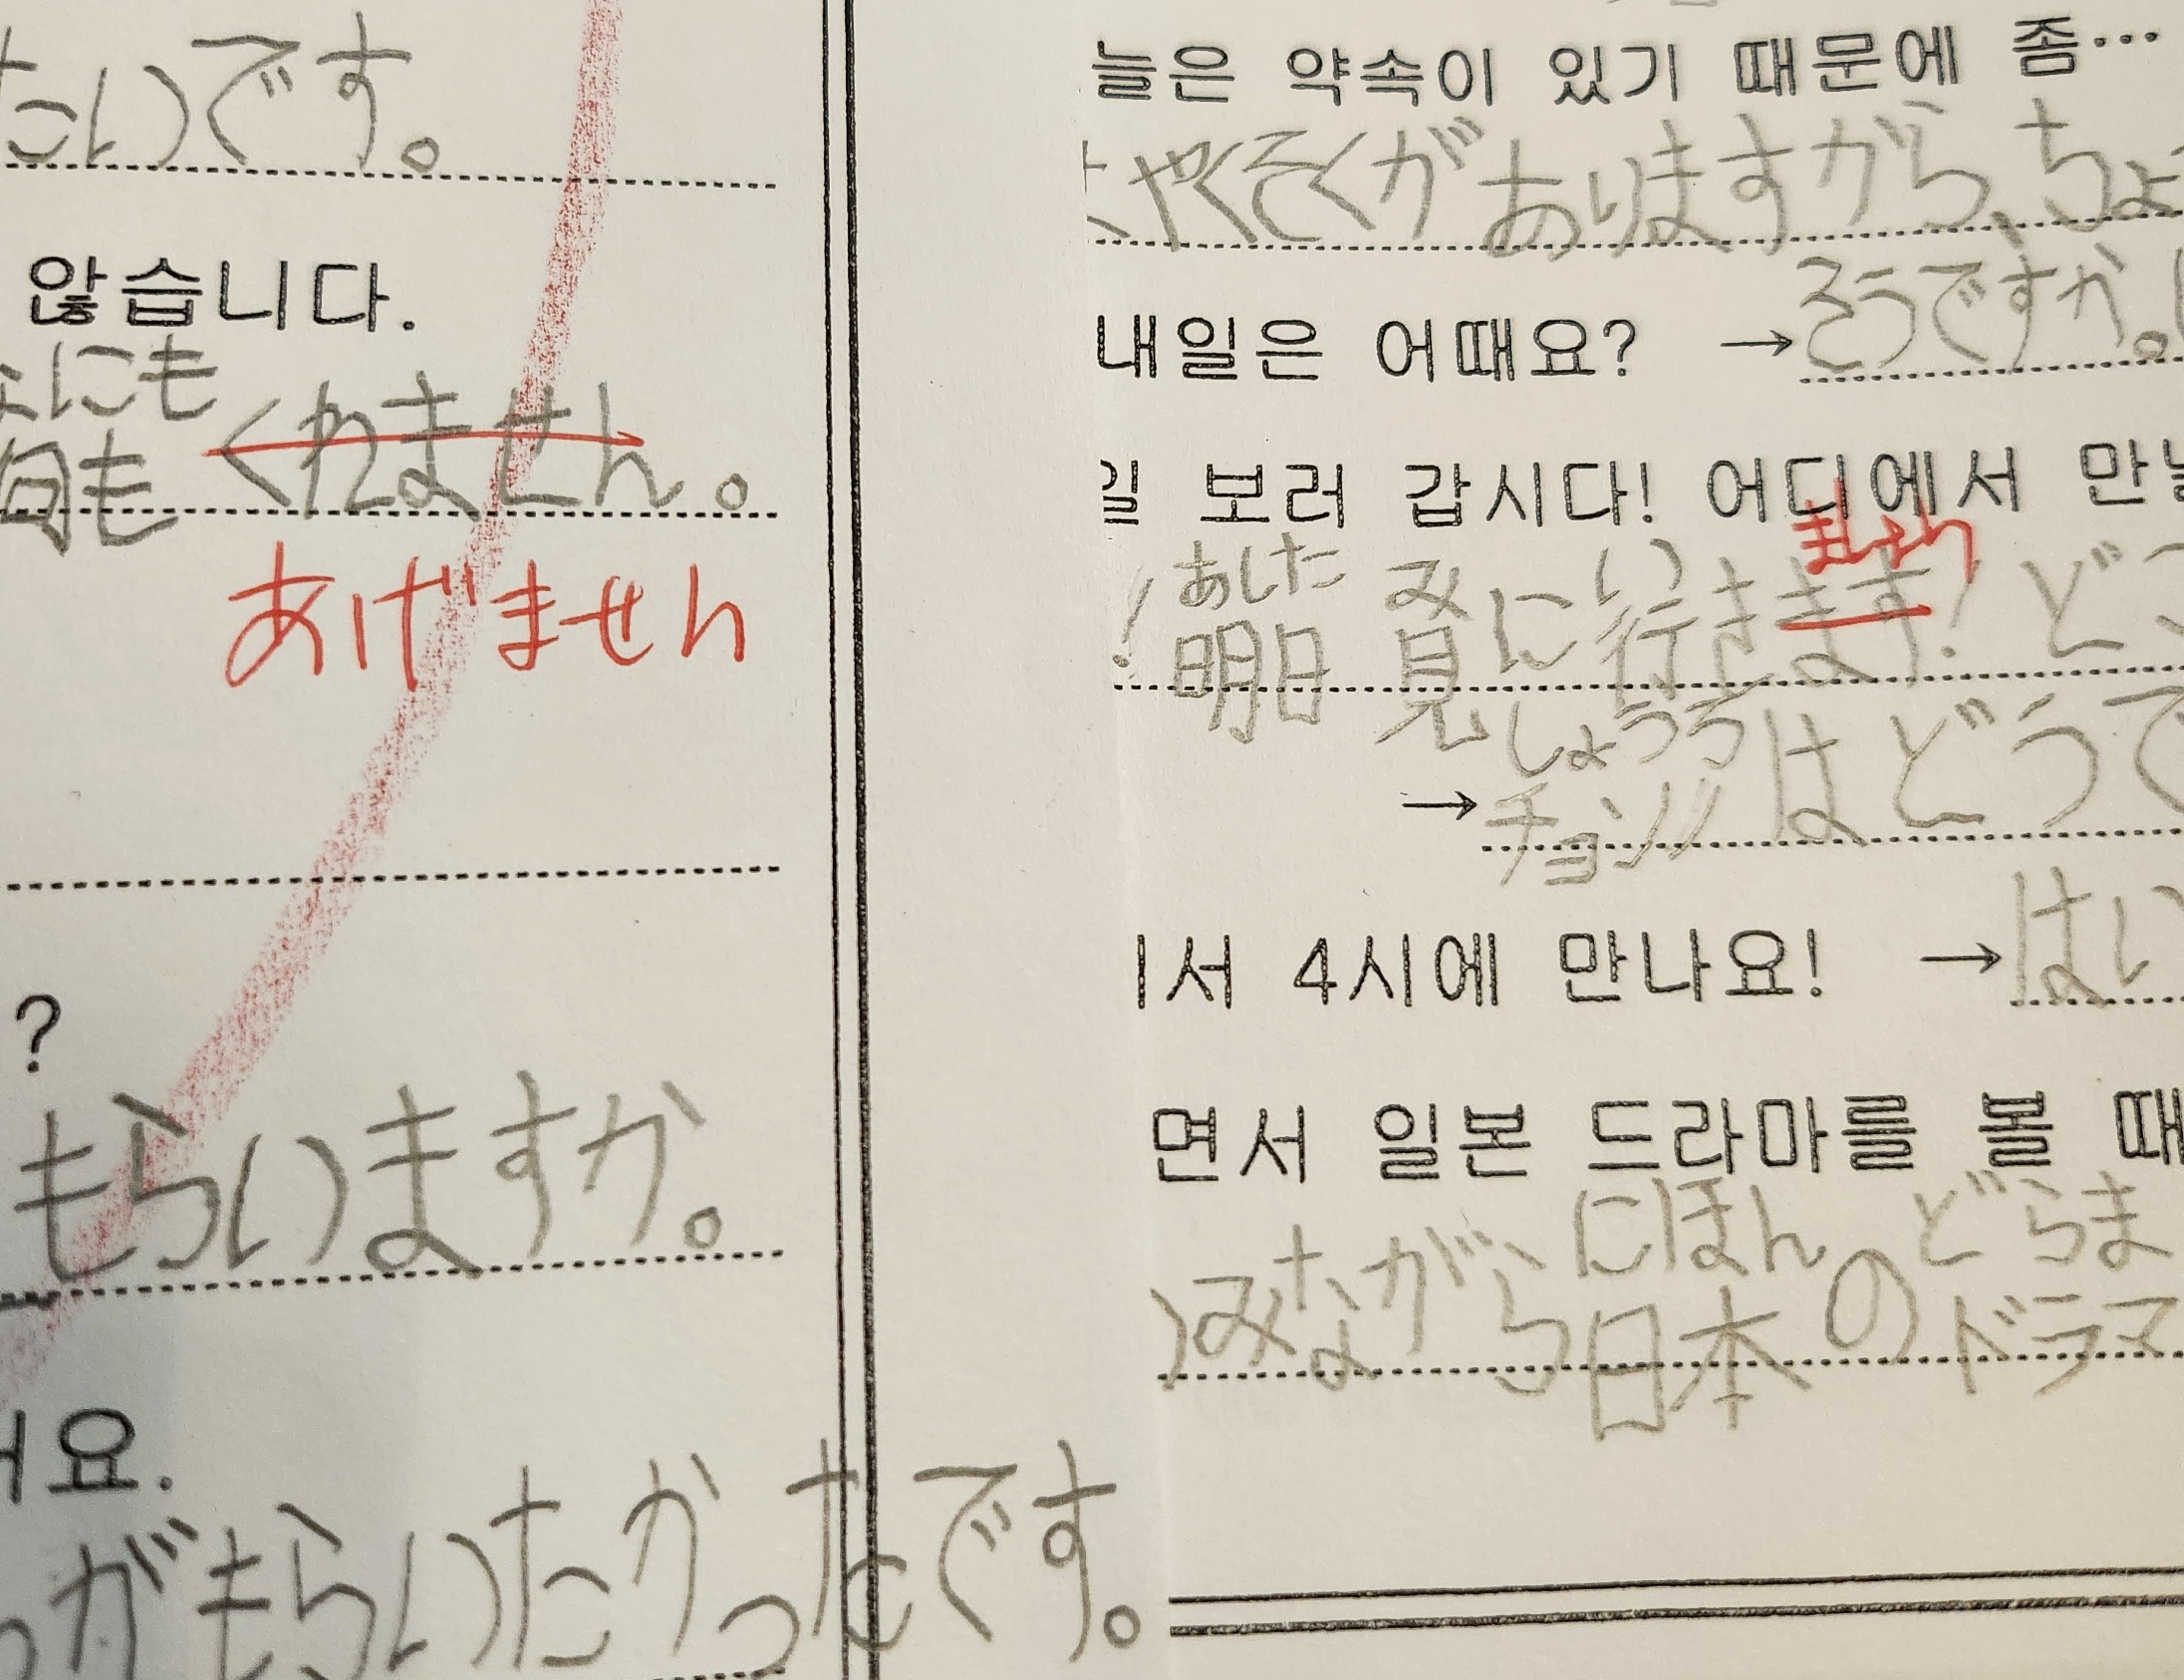 たいです。
않습니다.
なにも
何も くれません。
あげません
?
もらいますか。
요.
がもらいたかったです。
늘은 약속이 있기 때문에 좀…
やくそくがありますから、ちょ
내일은 어때요? →そうですか。
일 보러 갑시다! 어디에서 만날
ません
! あした み い
明日 見に行きます! どこ
しょうろ
→チョンノ はどうで
서 4시에 만나요! →はい
면서 일본 드라마를 볼 때
にほん どらま
みながら日本のドラマ